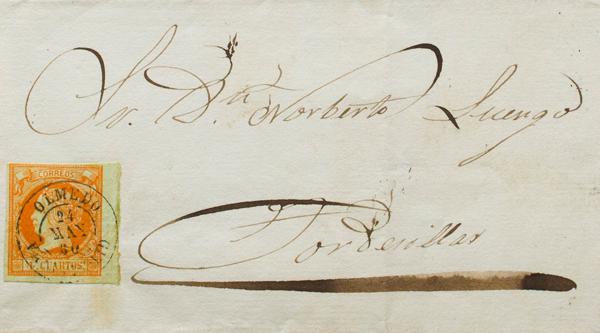 Sr. Dn. Norberto Luengo
Tordesillas
CORREOS
OLMEDO
24
MAY
60
CUARTOS.